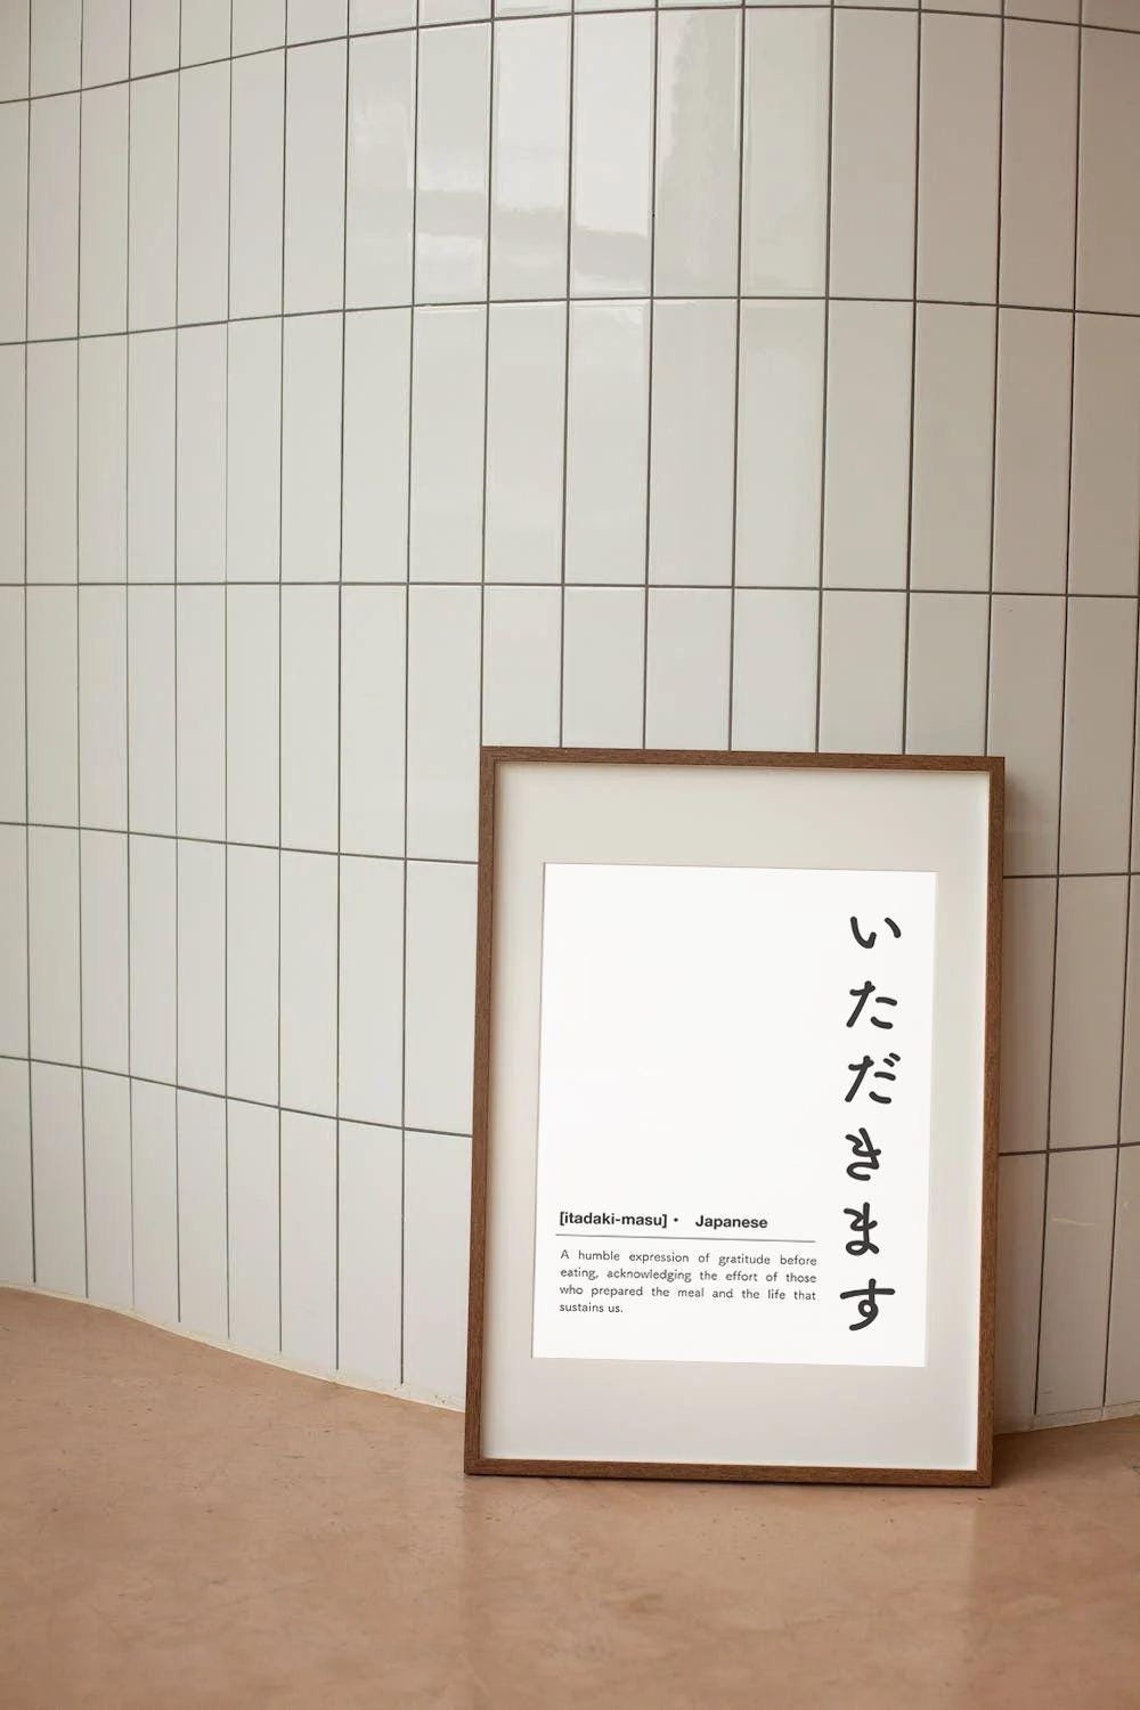 いただきます
[itadaki-masu] • Japanese
A humble expression of gratitude before
eating, acknowledging the effort of those
who prepared the meal and the life that
sustains us.